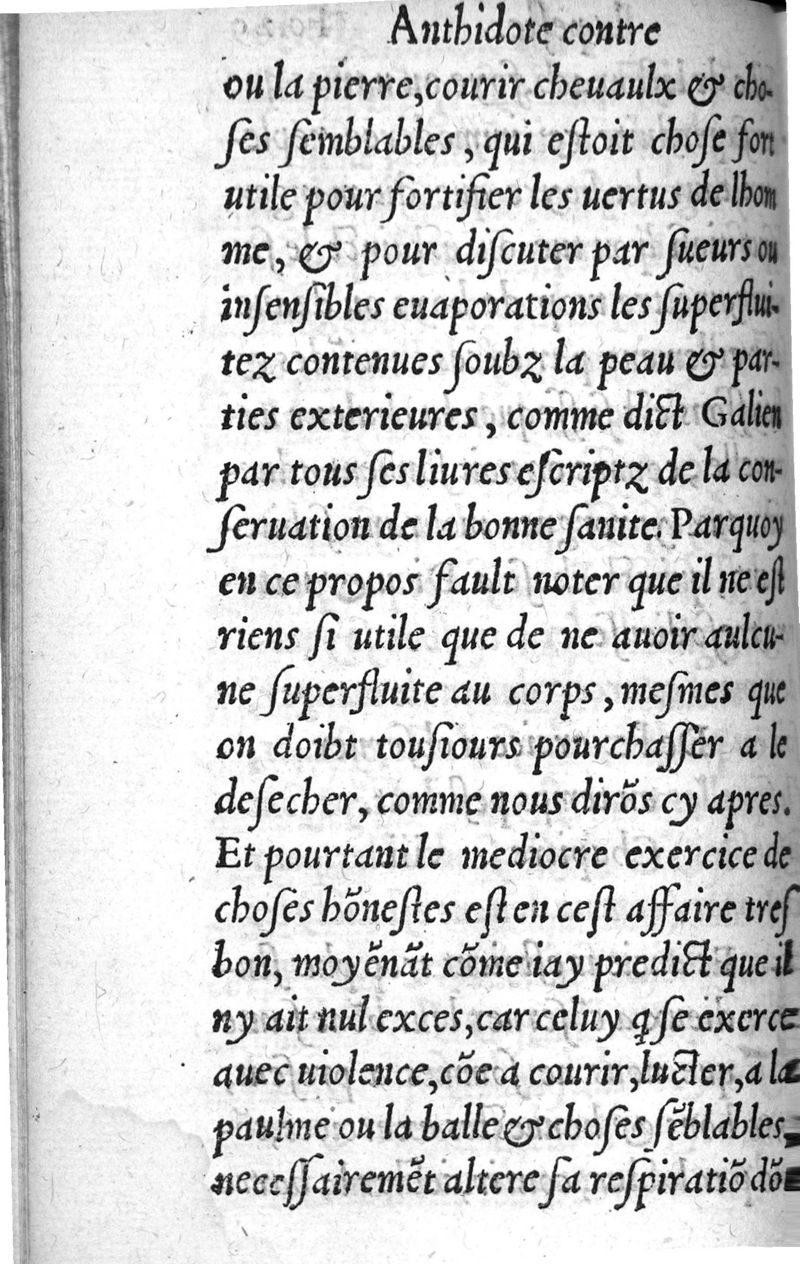 Anthidote contre
ou la pierre,courir cheuaulx & cho-
ſes ſemblables, qui eſtoit choſe fort
utile pour fortifier les uertus de lhom
me, & pour diſcuter par ſueurs ou
inſenſibles euaporations les ſuperflui-
tez contenues ſoubz la peau & par-
ties exterieures, comme dict Galien
par tous ſes liures eſcriptz de la con-
ſeruation de la bonne ſanite. Parquoy
en ce propos fault noter que il ne eſt
riens ſi utile que de ne auoir aulcu-
ne ſuperfluite au corps, meſmes que
on doibt touſiours pourchaſſer a le
deſecher, comme nous dirōs cy apres.
Et pourtant le mediocre exercice de
choſes hōneſtes eſt en ceſt affaire treſ
bon, moyēnāt cōme iay predict que il
ny ait nul exces, car celuy q̄ ſe exerce
auec uiolence, cōe a courir, lucter, a la
paulme ou la balle & choſes ſēblables,
neceſſairemēt altere ſa reſpiratiō dō